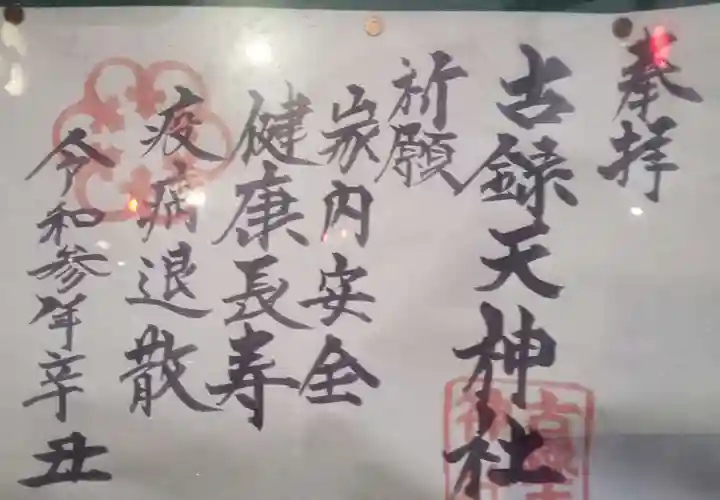 奉拝
古録天神社
祈願
家内安全
健康長寿
疫病退散
令和参年辛丑